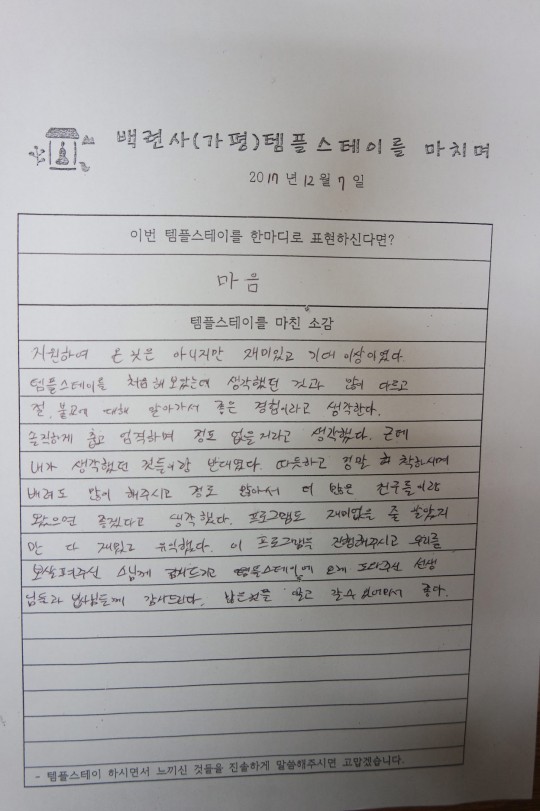 백련사(가평)템플스테이를 마치며
2017년 12월 7일
이번 템플스테이를 한마디로 표현하신다면?
마음
템플스테이를 마친 소감
지원하여 온 것은 아니지만 재미있고 기대 이상이였다
템플스테이를 처음 해보았는데 생각했던 것과 많이 다르고
절, 불교에 대해 알아가서 좋은 경험이라고 생각한다.
솔직하게 춥고 엄격하며 정도 없을거라고 생각했다. 근데
내가 생각했던 것들이랑 반대였다. 따듯하고 정말 착하시며
배려도 많이 해주시고 정도 많아서 더 많은 친구들이랑
왔으면 좋겠다고 생각했다. 프로그램도 재미없을 줄 알았지
만 다 재밌고 유익했다. 이 프로그램을 진행해주시고 우리를
보살펴주신 스님께 감사드리고 템플스테이에 오게 도와주신 선생
님들과 봉사님들께 감사드린다. 많은것을 알고 갈수 있어서 좋다.
- 템플스테이 하시면서 느끼신 것들을 진솔하게 말씀해주시면 고맙겠습니다.